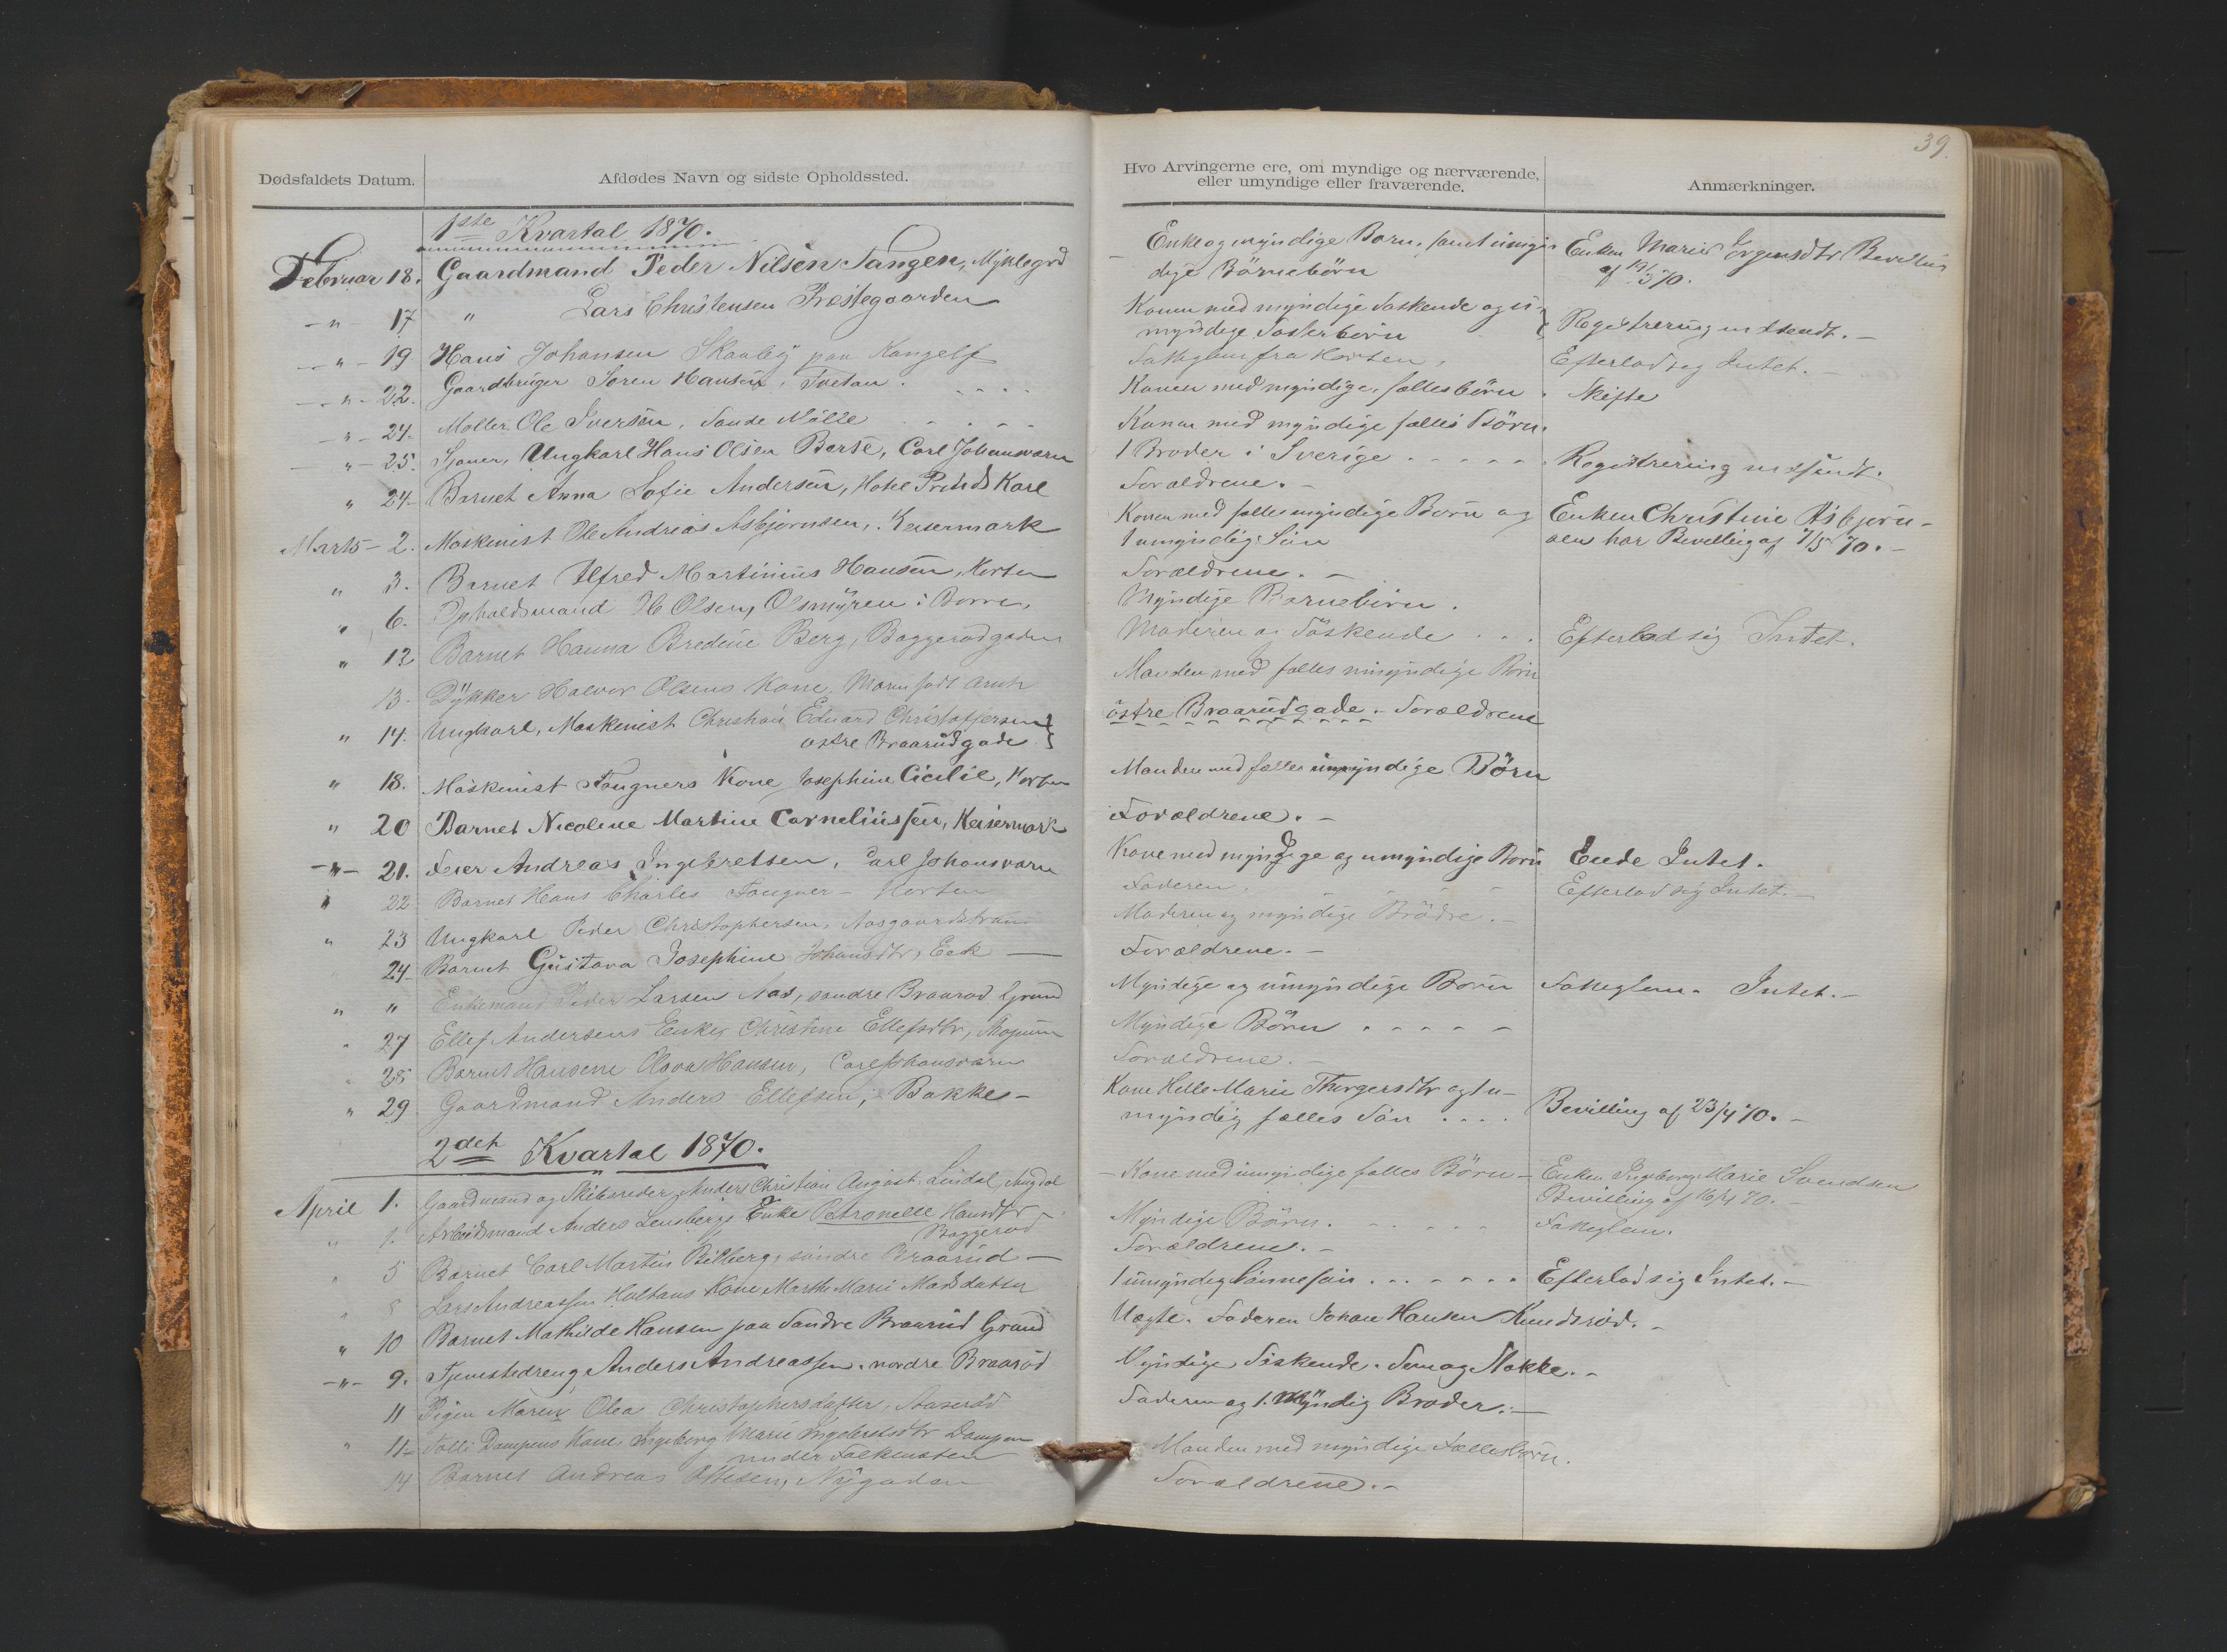 39.
Dødsfaldets Datum.
Afdødes Navn og sidste Opholdssted.
Hvo Arvingerne ere, om myndige og nærværende,
eller umyndige eller fraværende.
Anmærkninger.
1ste Kvartal 1870.
Februar 18. Gaardmand Peder Nilsen Tangen, Myklegrd
Enke og myndige Børn, samt umyn-
dige Börnebörn
Enken Marie Jörgensdtr Bevilling
- " - 17 " Lars Christensen Præstegaarden
Konen med myndige Søskende og u-
myndige Søsterbörn
Registrering indsendt. -
- " - 19 Hans Johansen Skaaby paa Kongelf
fra Horten.
Efterlod sig Intet. -
- " - 22. Gaardbruger Søren Hansen, Tveten.
Konen med myndige, fællesbörn
Skifte
- " - 24. Møller Ole Iversen, Sande Mölle
Konen med myndige fælles Börn.
- " - 25. Ungkarl Hans Olsen Berte, Carl Johansværn
1 Broder i Sverige
Registrering indsendt.
" 24 Barnet Anna Sofie Andersen, Hotel Prinds Karl
Forældrene. -
Marts - 2. Maskinist Ole Andreas Asbjørnsen, Keisermark
Konen med fælles myndige Börn og
1 umyndig Sön
Enken Christine Asbjørn-
sen har Bevilling af 7/5 70. -
" 3. Barnet Alfred Martinius Hansen, Horten
Forældrene. -
" 6. H Olsen, Olsmyren i Borre,
Myndige Barnebörn.
" 12 Barnet Hanna Bredine Berg, Baggerødgaden
Moderen og Söskende
Efterlod sig Intet.
13. Dykker Halvor Olsens Kone, Maren født
Manden med fælles umyndige Börn
" 14. Ungkarl, Maskinist Christian Eduard Christoffersen
østre Braarudgade
østre Braarudgade. Forældrene
" 18. Maskinist Fougners Kone Josephine Cicilie, Horten
Manden med fælles umyndige Börn
" 20 Barnet Nicoline Martine Corneliussen, Keisermark
Forældrene. -
- " - 21. Feier Andreas Ingebretsen, Carl Johansværn
Kone med myndige og umyndige Børn
Eiede Intet.
" 22 Barnet Hans Charles Fougner - Horten
Faderen.
Efterlod sig Intet. -
" 23 Ungkarl Peder Christophersen, Aasgaardstrand
Moderen og myndige Brödre. -
24 Barnet Gustava Josephine Johansdtr, Eek
Forældrene. -
" " Enkemand Peder Larsen Aas, søndre Braarød Grund
Myndige og umyndige Børn
Intet. -
" 27 Ellef Andersens Enke, Christine Ellefsdtr,
Myndige Börn
" 28 Barnet Hansene Olava Hansen, Carl Johansværn
Forældrene. -
" 29 Gaardmand Anders Ellefsen, Bakke -
Kone Helle Marie Thorgersdtr og 1 u-
myndig fælles Sön
Bevilling af 23/4 70. -
2det Kvartal 1870.
April 1. Gaardmand og Skibsreder Anders Christian August Lindal,
- Kone med umyndige fælles Börn -
Enken Ingeborg Marie Svendsen
Bevilling af 16/4 70. -
" 1. Arbeidsmand Anders Lensbergs Enke Petronelle Hansdtr
Baggerød
Myndige Börn.
" 5 Barnet Carl Martin Bilberg, søndre Braarud -
Forældrene. -
" 8 Lars Andreassen Holtans Kone Marthe Marie Madsdatter
1 umyndig Sønnesøn
Efterlod sig Intet. -
" 10 Barnet Mathilde Hansen paa Søndre Braarud Grund
Uægte. Faderen Johan Hansen Knudsrød. -
- " - 9. Tjenestedreng Anders Andreassen. nordre Braarød
Myndige Söskende. Sem og Stokke. -
11 Pigen Maren Olea Christophersdatter,
Faderen og 1. Myndig Broder. -
" 11 Kone Ingeborg Marie Ingebretsdtr Dampen
under Falkensten
Manden med myndige Fællesbörn.
14 Barnet Andreas Ottesen, Nygaden
Forældrene. -